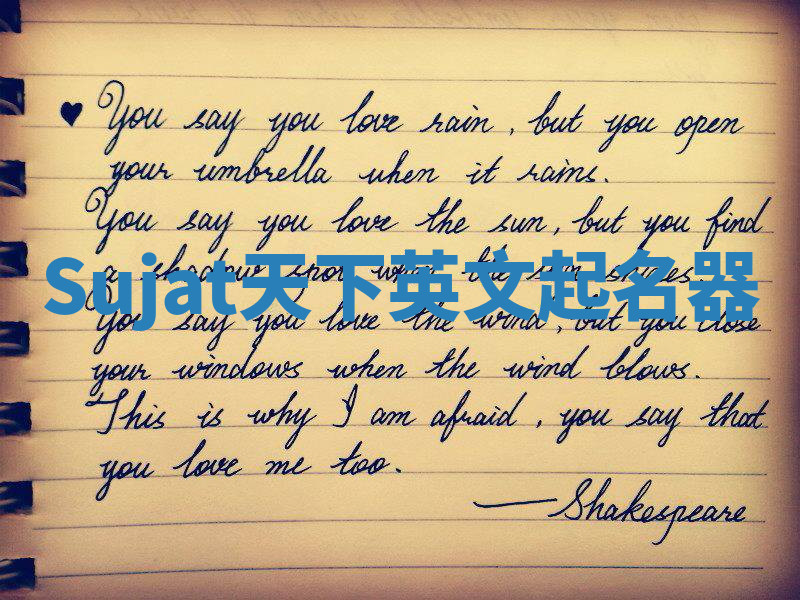 ♥ You say you love rain, but you open
your umbrella when it rains.
You say you love the sun, but you find
a shadow spot when the sun shines.
Sujat天下英文起名器
You say you love the wind, but you close
your windows when the wind blows.
This is why I am afraid, you say that
you love me too.
—Shakespeare